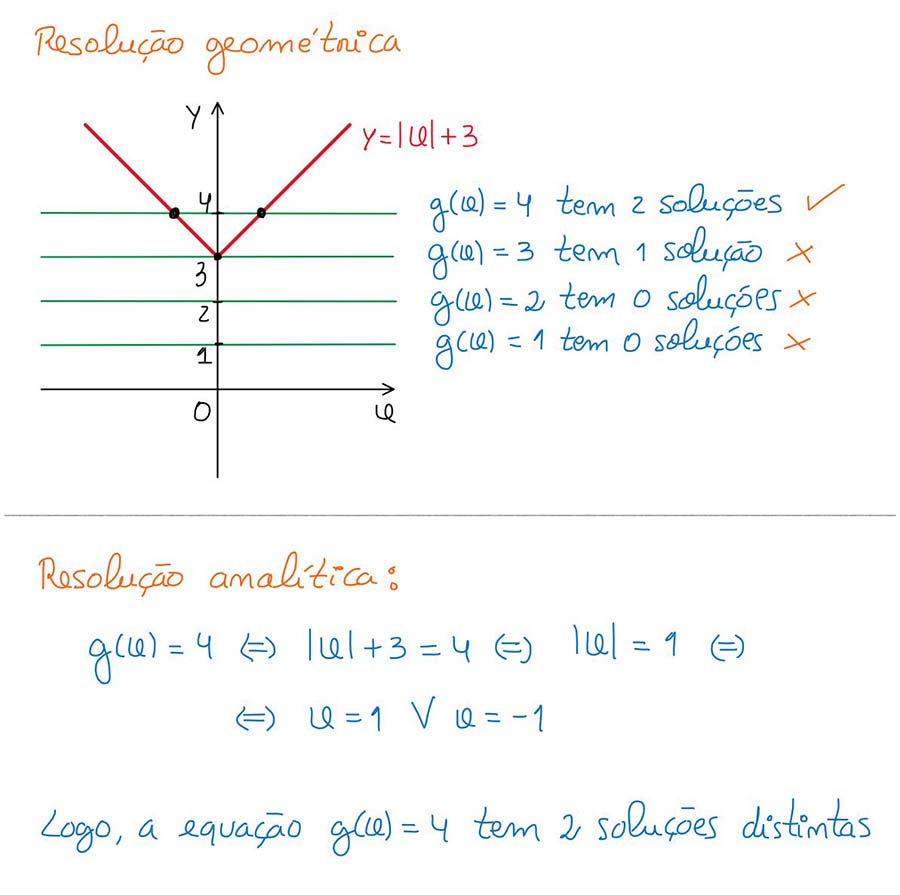 Resolução geométrica
y
y=|x|+3
4
3
2
1
0
x
g(x) = 4 tem 2 soluções ✓
g(x) = 3 tem 1 solução ×
g(x) = 2 tem 0 soluções ×
g(x) = 1 tem 0 soluções ×
Resolução analítica:
g(x) = 4 ⇔ |x| + 3 = 4 ⇔ |x| = 1 ⇔
⇔ x = 1 ∨ x = -1
Logo, a equação g(x) = 4 tem 2 soluções distintas